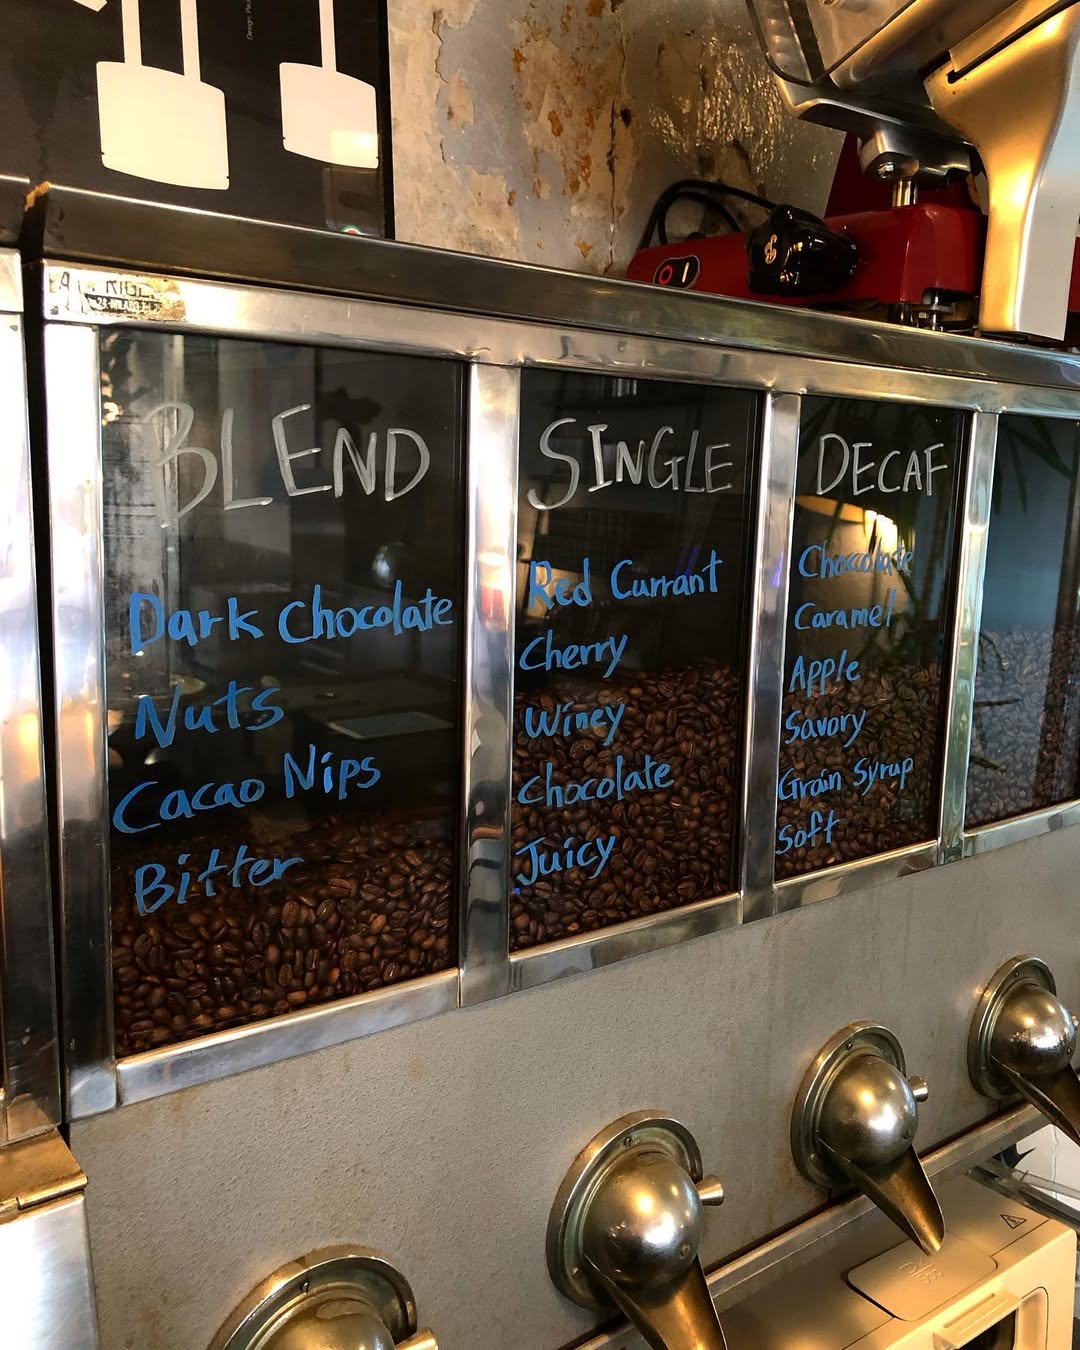 BLEND
Dark Chocolate
Nuts
Cacao Nips
Bitter
SINGLE
Red Currant
Cherry
Winey
Chocolate
Juicy
DECAF
Chocolate
Caramel
Apple
Savory
Grain Syrup
Soft